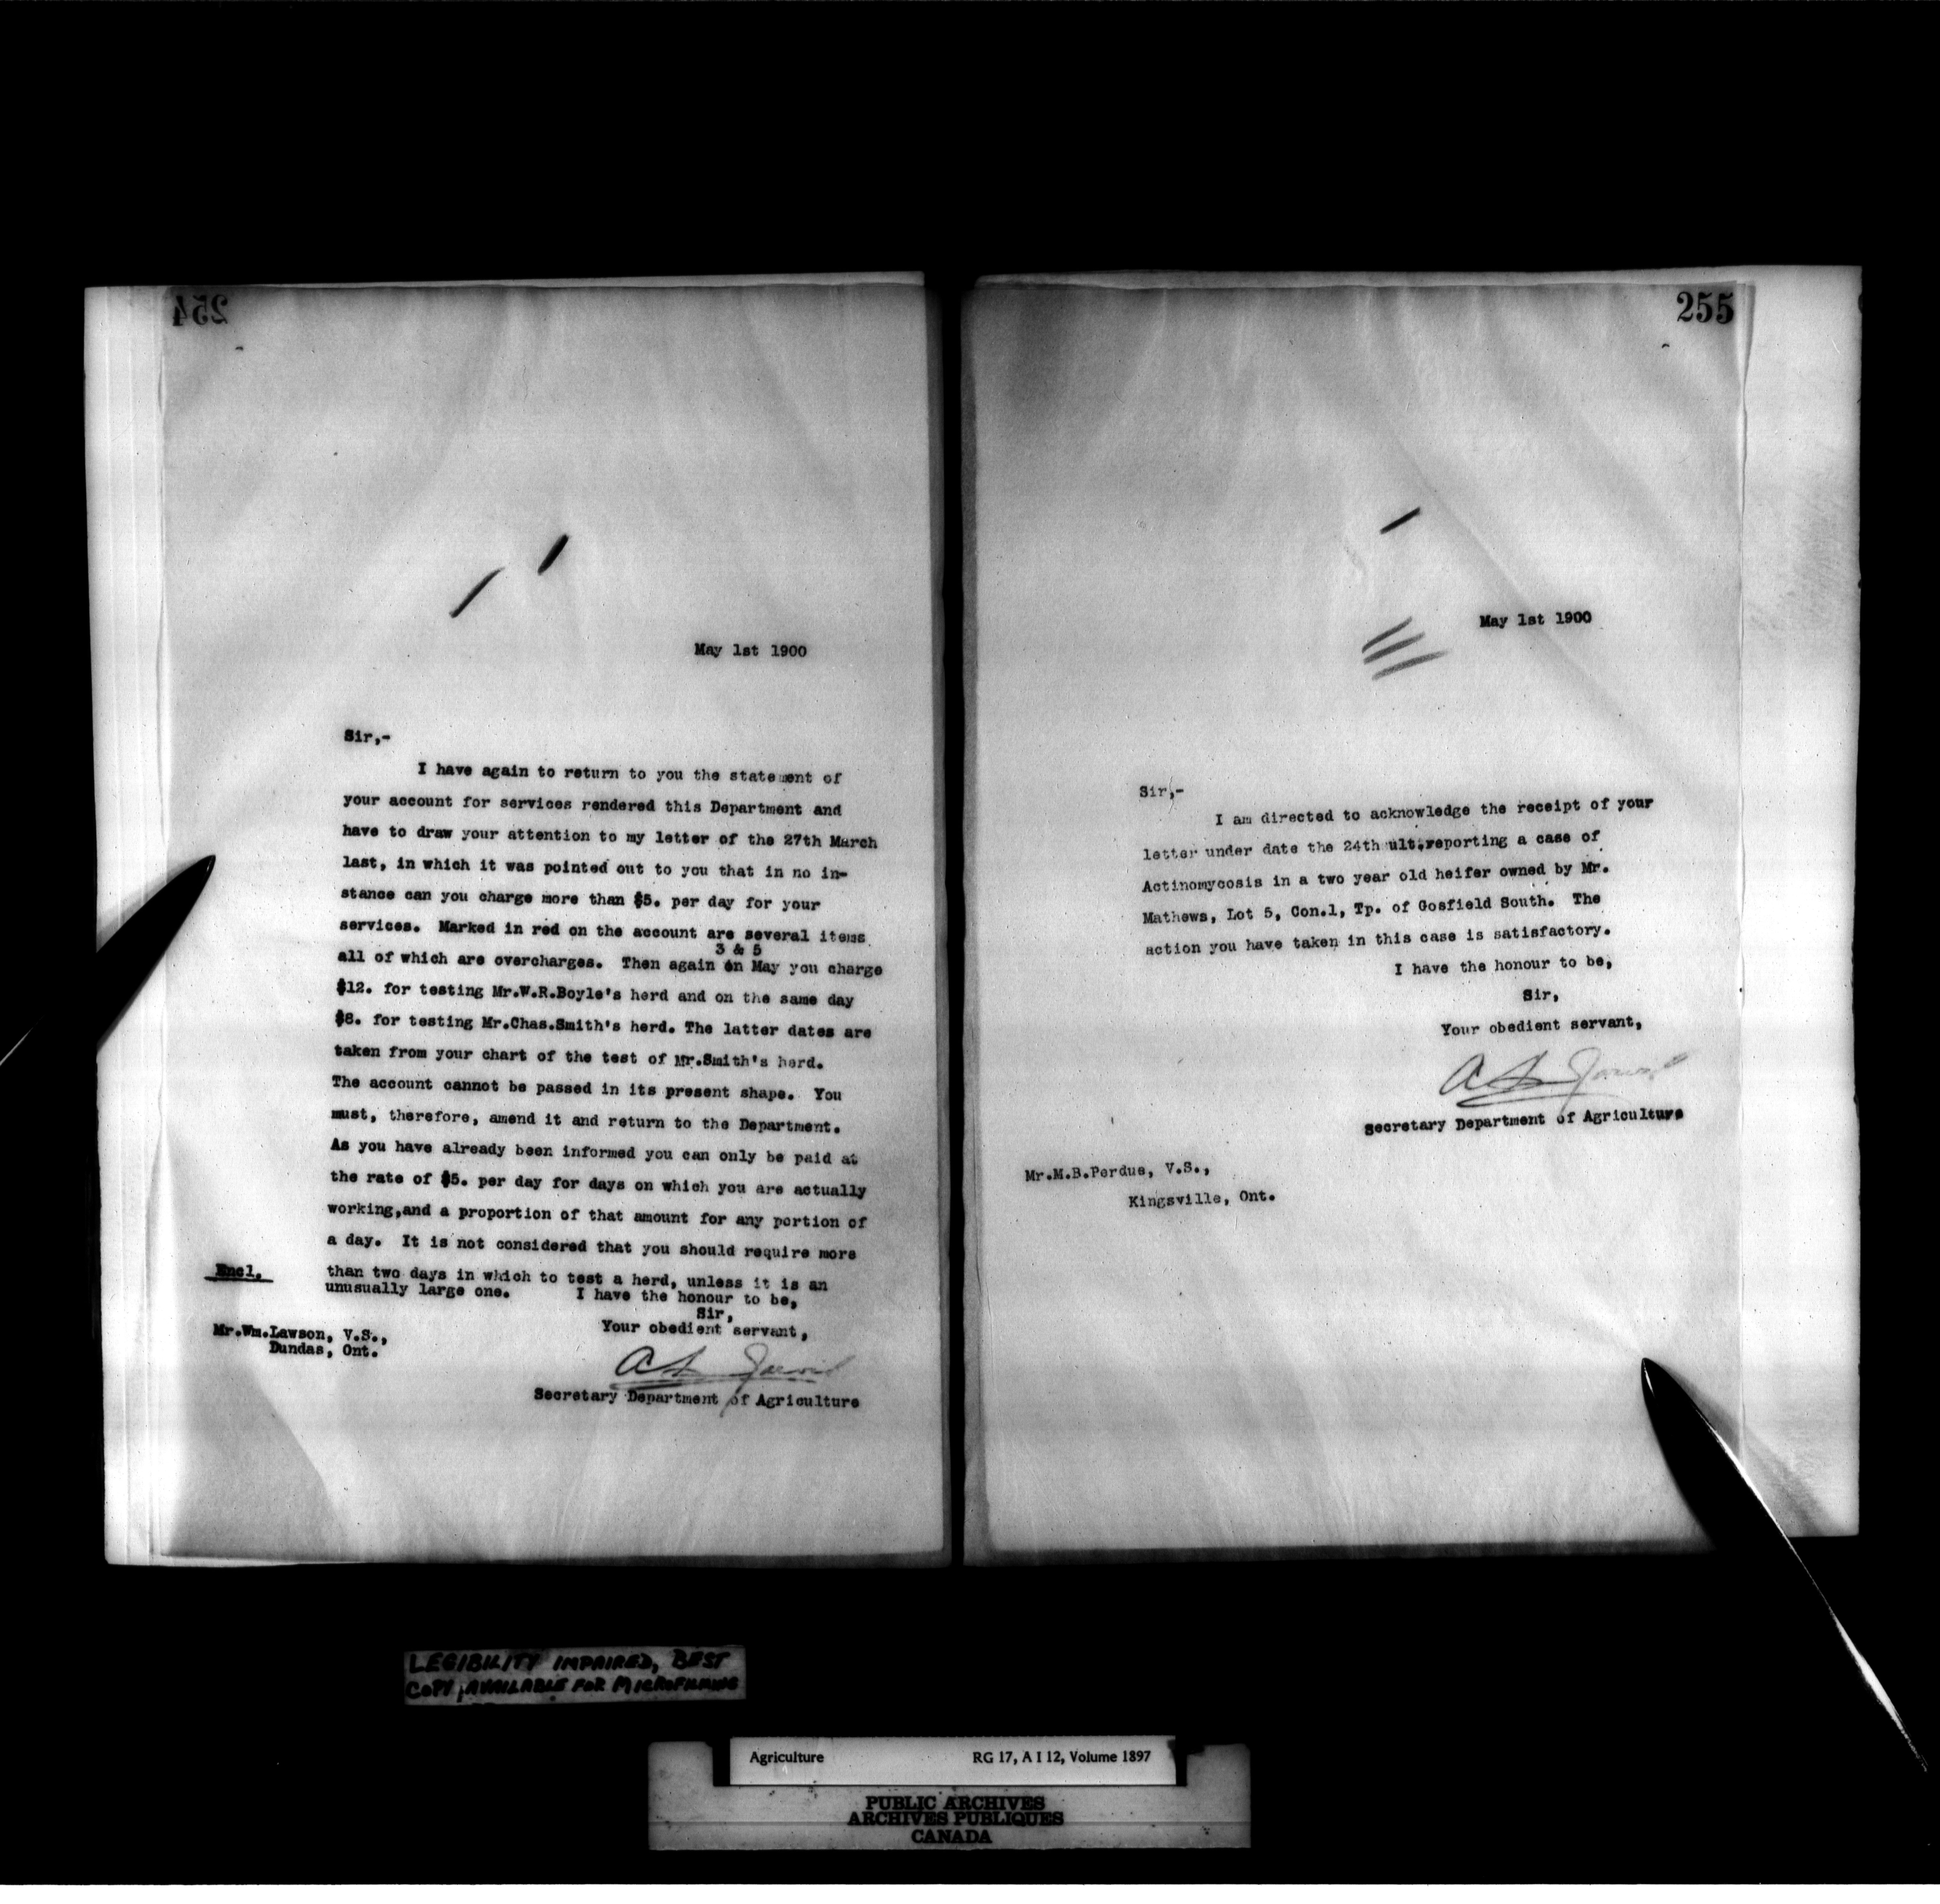 254
May 1st 1900
Sir,-
I have again to return to you the statement of
your account for services rendered this Department and
have to draw your attention to my letter of the 27th March
last, in which it was pointed out to you that in no in-
stance can you charge more than $5. per day for your
services. Marked in red on the account are several items
3 & 5
all of which are overcharges. Then again on May you charge
$12. for testing Mr.W.R.Boyle's herd and on the same day
$8. for testing Mr.Chas.Smith's herd. The latter dates are
taken from your chart of the test of Mr.Smith's herd.
The account cannot be passed in its present shape. You
must, therefore, amend it and return to the Department.
As you have already been informed you can only be paid at
the rate of $5. per day for days on which you are actually
working,and a proportion of that amount for any portion of
a day. It is not considered that you should require more
Encl.
than two days in which to test a herd, unless it is an
unusually large one. I have the honour to be,
Sir,
Your obedient servant,
Mr.Wm.Lawson, V.S.,
Dundas, Ont.
Secretary Department of Agriculture
255
May 1st 1900
Sir,-
I am directed to acknowledge the receipt of your
letter under date the 24th ult.reporting a case of
Actinomycosis in a two year old heifer owned by Mr.
Mathews, Lot 5, Con.1, Tp. of Gosfield South. The
action you have taken in this case is satisfactory.
I have the honour to be,
Sir,
Your obedient servant,
Secretary Department of Agriculture
Mr.M.B.Perdue, V.S.,
Kingsville, Ont.
LEGIBILITY IMPAIRED, BEST
COPY AVAILABLE FOR MICROFILMING
Agriculture RG 17, A I 12, Volume 1897
PUBLIC ARCHIVES
ARCHIVES PUBLIQUES
CANADA